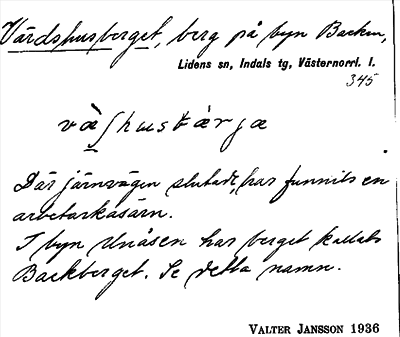 Värdshusberget, berg på byn Backen,
Lidens sn, Indals tg, Västernorrl. l.
345
vä̀ʃhusbærjæ
Där järnvägen slutade, har funnits en
arbetarkasärn.
I byn Unåsen har berget kallats
Backberget. Se detta namn.
VALTER JANSSON 1936